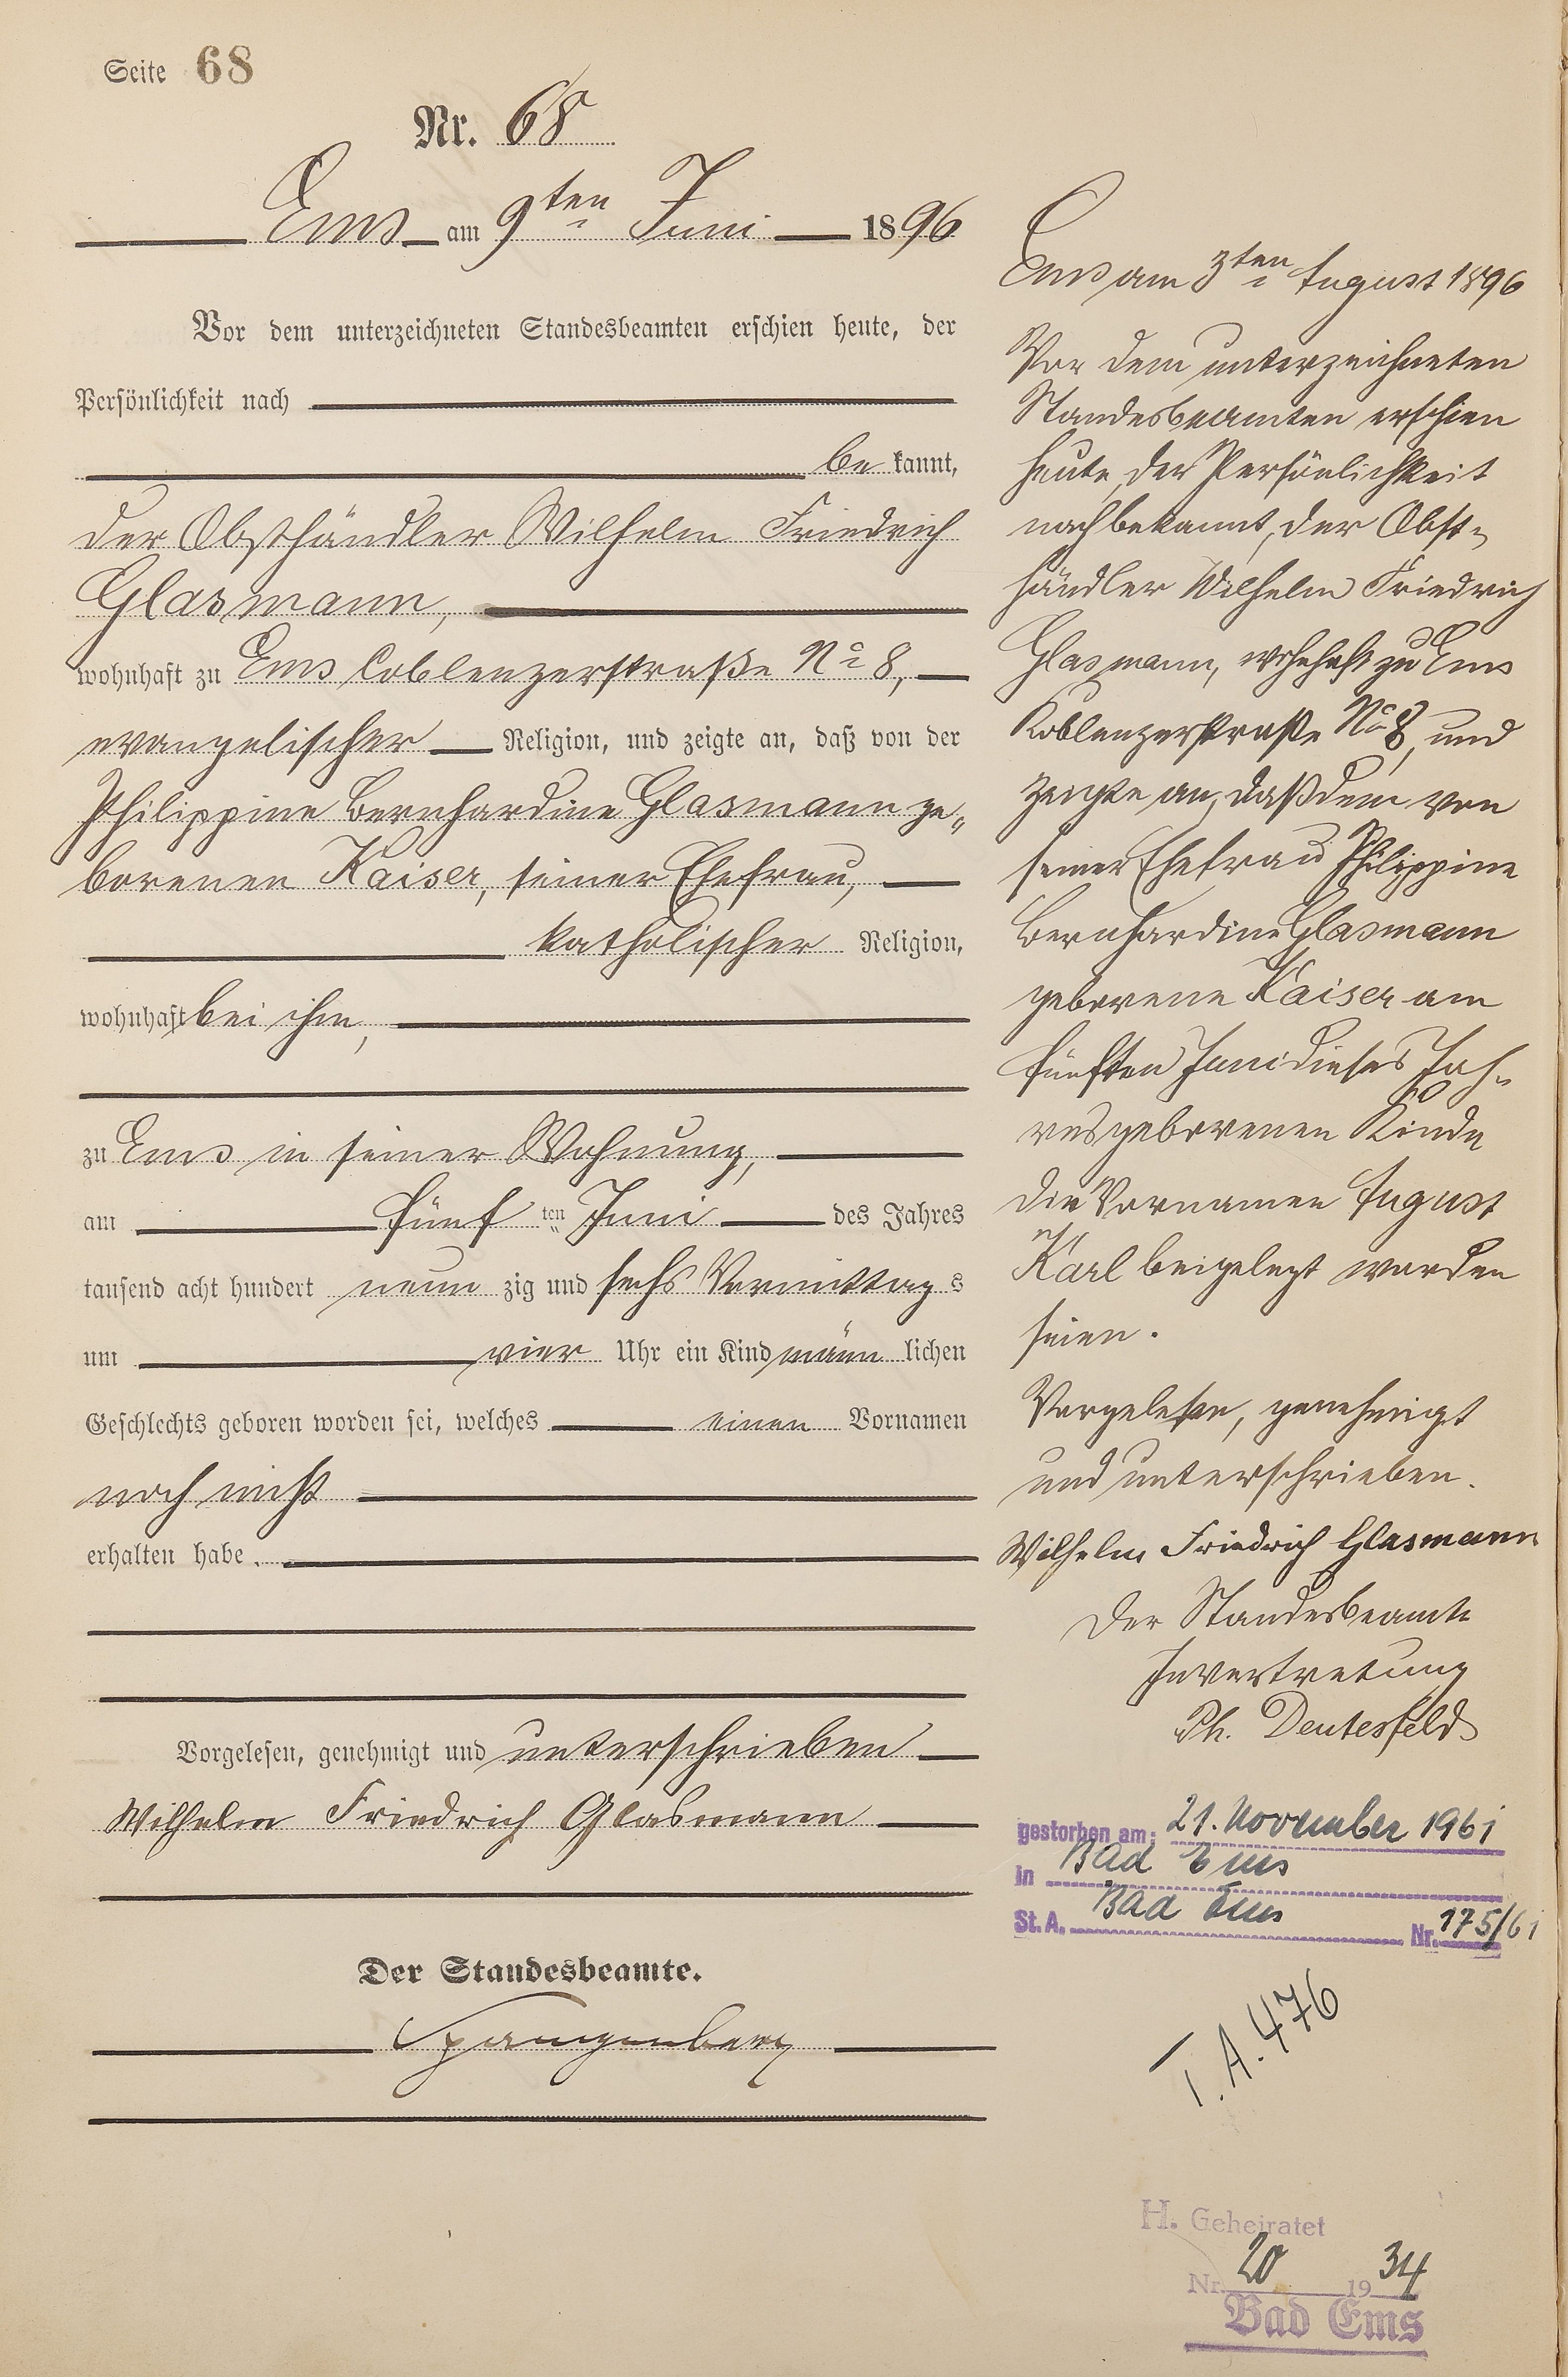 Seite 68
Nr. 68
Ems am 9ten Juni 1896
Vor dem unterzeichneten Standesbeamten erschien heute, der
Persönlichkeit nach
be kannt,
der Obsthändler Wilhelm Friedrich
Glasmann,
wohnhaft zu Ems Coblenzerstraße No 8,
evangelischer Religion, und zeigte an, daß von der
Philippine Bernhardine Glasmann ge„
borenen Kaiser, seiner Ehefrau,
katholischer Religion,
wohnhaft bei ihm,
zu Ems in seiner Wohnung,
am fünf ten Juni des Jahres
tausend acht hundert neun zig und sechs Vormittag s
um vier Uhr ein Kind männ lichen
Geschlechts geboren worden sei, welches einen Vornamen
noch nicht
erhalten habe.
Vorgelesen, genehmigt und unterschrieben
Wilhelm Friedrich Glasmann
Der Standesbeamte.
Spangenberg
Ems am 3ten August 1896
Vor dem unterzeichneten
Standesbeamten erschien
heute, der Persönlichkeit
nach bekannt, der Obst-
händler Wilhelm Friedrich
Glasmann, wohnhaft zu Ems
Koblenzerstraße No 8, und
zeigte an, daß dem von
seiner Ehefrau Philippine
Bernhardine Glasmann
geborene Kaiser am
fünften Juni dieses Jah-
res geborenen Kinde
die Vornamen August
Karl beigelegt worden
seien.
Vorgelesen, genehmigt
und unterschrieben.
Wilhelm Friedrich Glasmann
Der Standesbeamte
In Vertretung
Ph. Deutesfeld
gestorben am: 21. November 1961
in Bad Ems
St. A. Bad Ems Nr. 175/61
T. A. 476
H. Geheiratet
Nr. 20 19 34
Bad Ems